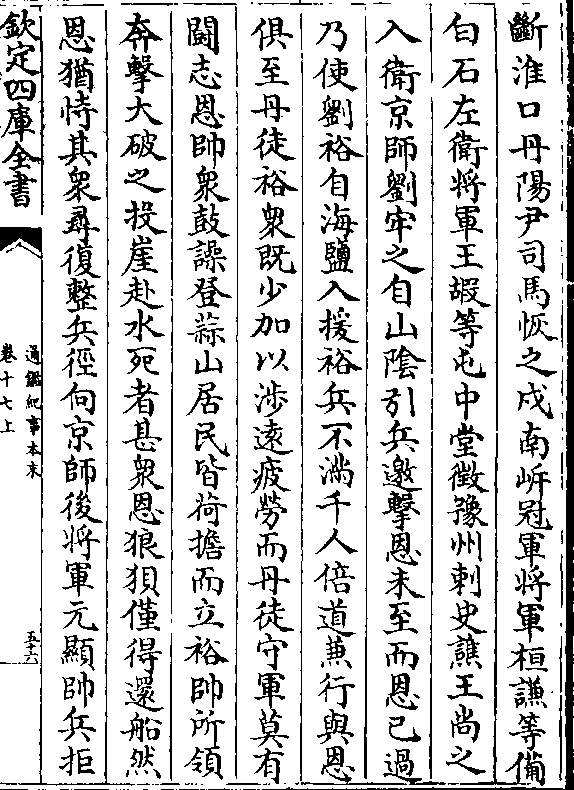 斷淮口丹陽尹司馬恢之戍南岍冠軍將軍桓謙等備
白石左衛將軍王嘏等屯中堂徵豫州刺史譙王尚之
入衛京師劉牢之自山陰引兵邀擊恩未至而恩已過
乃使劉裕自海鹽入援裕兵不滿千人倍道兼行與恩
俱至丹徒裕衆既少加以涉遠疲勞而丹徒守軍莫有
鬭志恩帥衆鼓譟登蒜山居民皆荷擔而立裕帥所領
奔擊大破之投崖赴水死者甚衆恩狼狽僅得還船然
恩猶恃其衆尋復整兵徑向京師後將軍元顯帥兵拒
欽定四庫全書
通鑑紀事本末
卷十七上
五十六